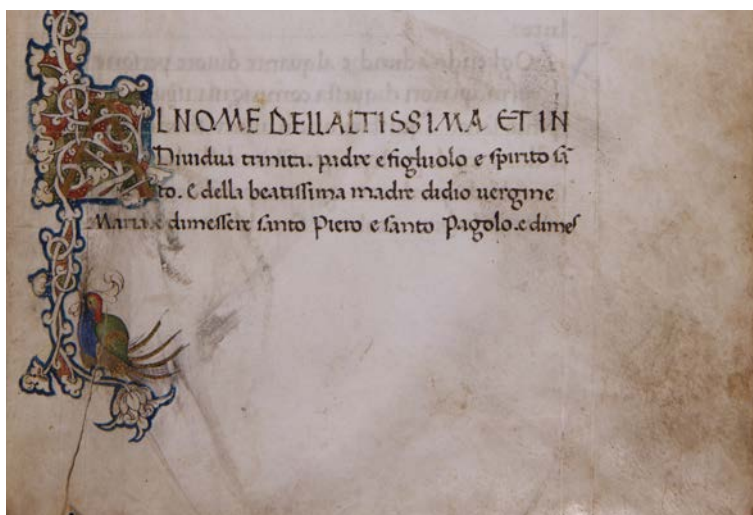 LNOME DELLALTISSIMA ET IN
Diuidua trinita. padre e figluolo e spirito sā
to. E della beatissima madre didio uergine
Maria e dimessere santo Piero e santo Pagolo. e dimes